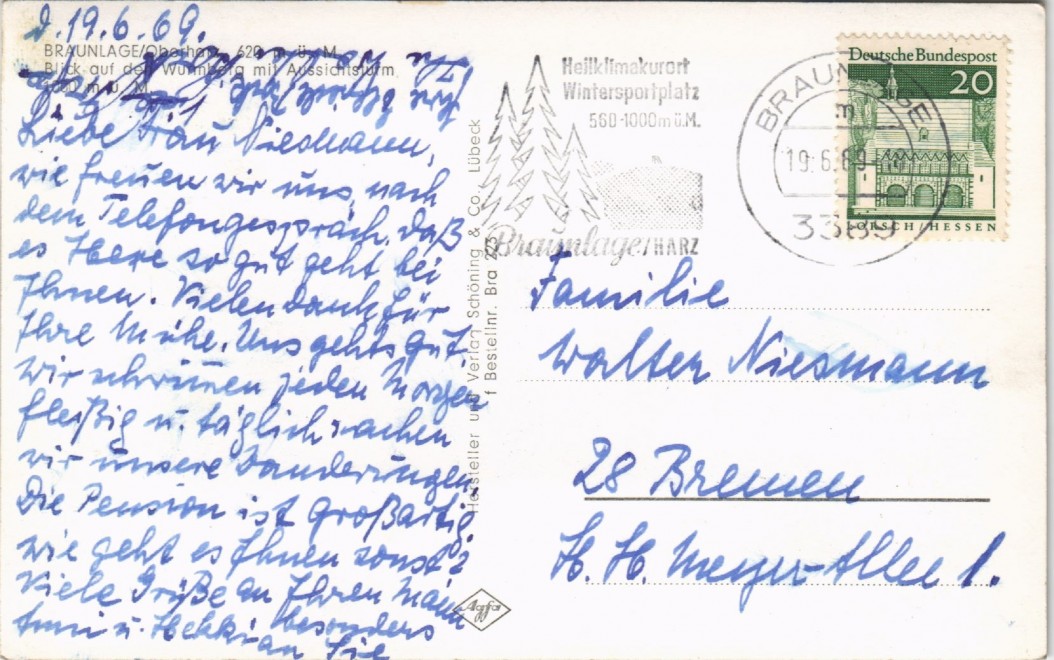 d. 19.6.69.
BRAUNLAGE/Oberharz, 620 m ü. M.
Blick auf den Wurmberg mit Aussichtsturm
m ü. M.
Liebe Frau Niesmann,
wie freuen wir uns, nach
dem Telefongespräch, daß
es so gut geht bei
Ihnen. Vielen Dank für
Ihre Mühe. Uns gehts gut,
wir schwimmen jeden Morgen
fleißig u. täglich machen
wir unsere Wanderungen.
Die Pension ist großartig,
wie geht es Ihnen sonst?
Viele Grüße an Ihren Mann
u. besonders
an Sie
Hersteller und Verlag Schöning & Co., Lübeck
Bestellnr. Bra
Agfa
Heilklimakurort
Wintersportplatz
560-1000m ü.M.
Braunlage/HARZ
BRAUNLAGE
19.6.69
Deutsche Bundespost
20
LORSCH/HESSEN
Familie
Walter Niesmann
28 Bremen
H. H. Meyer-Allee 1.